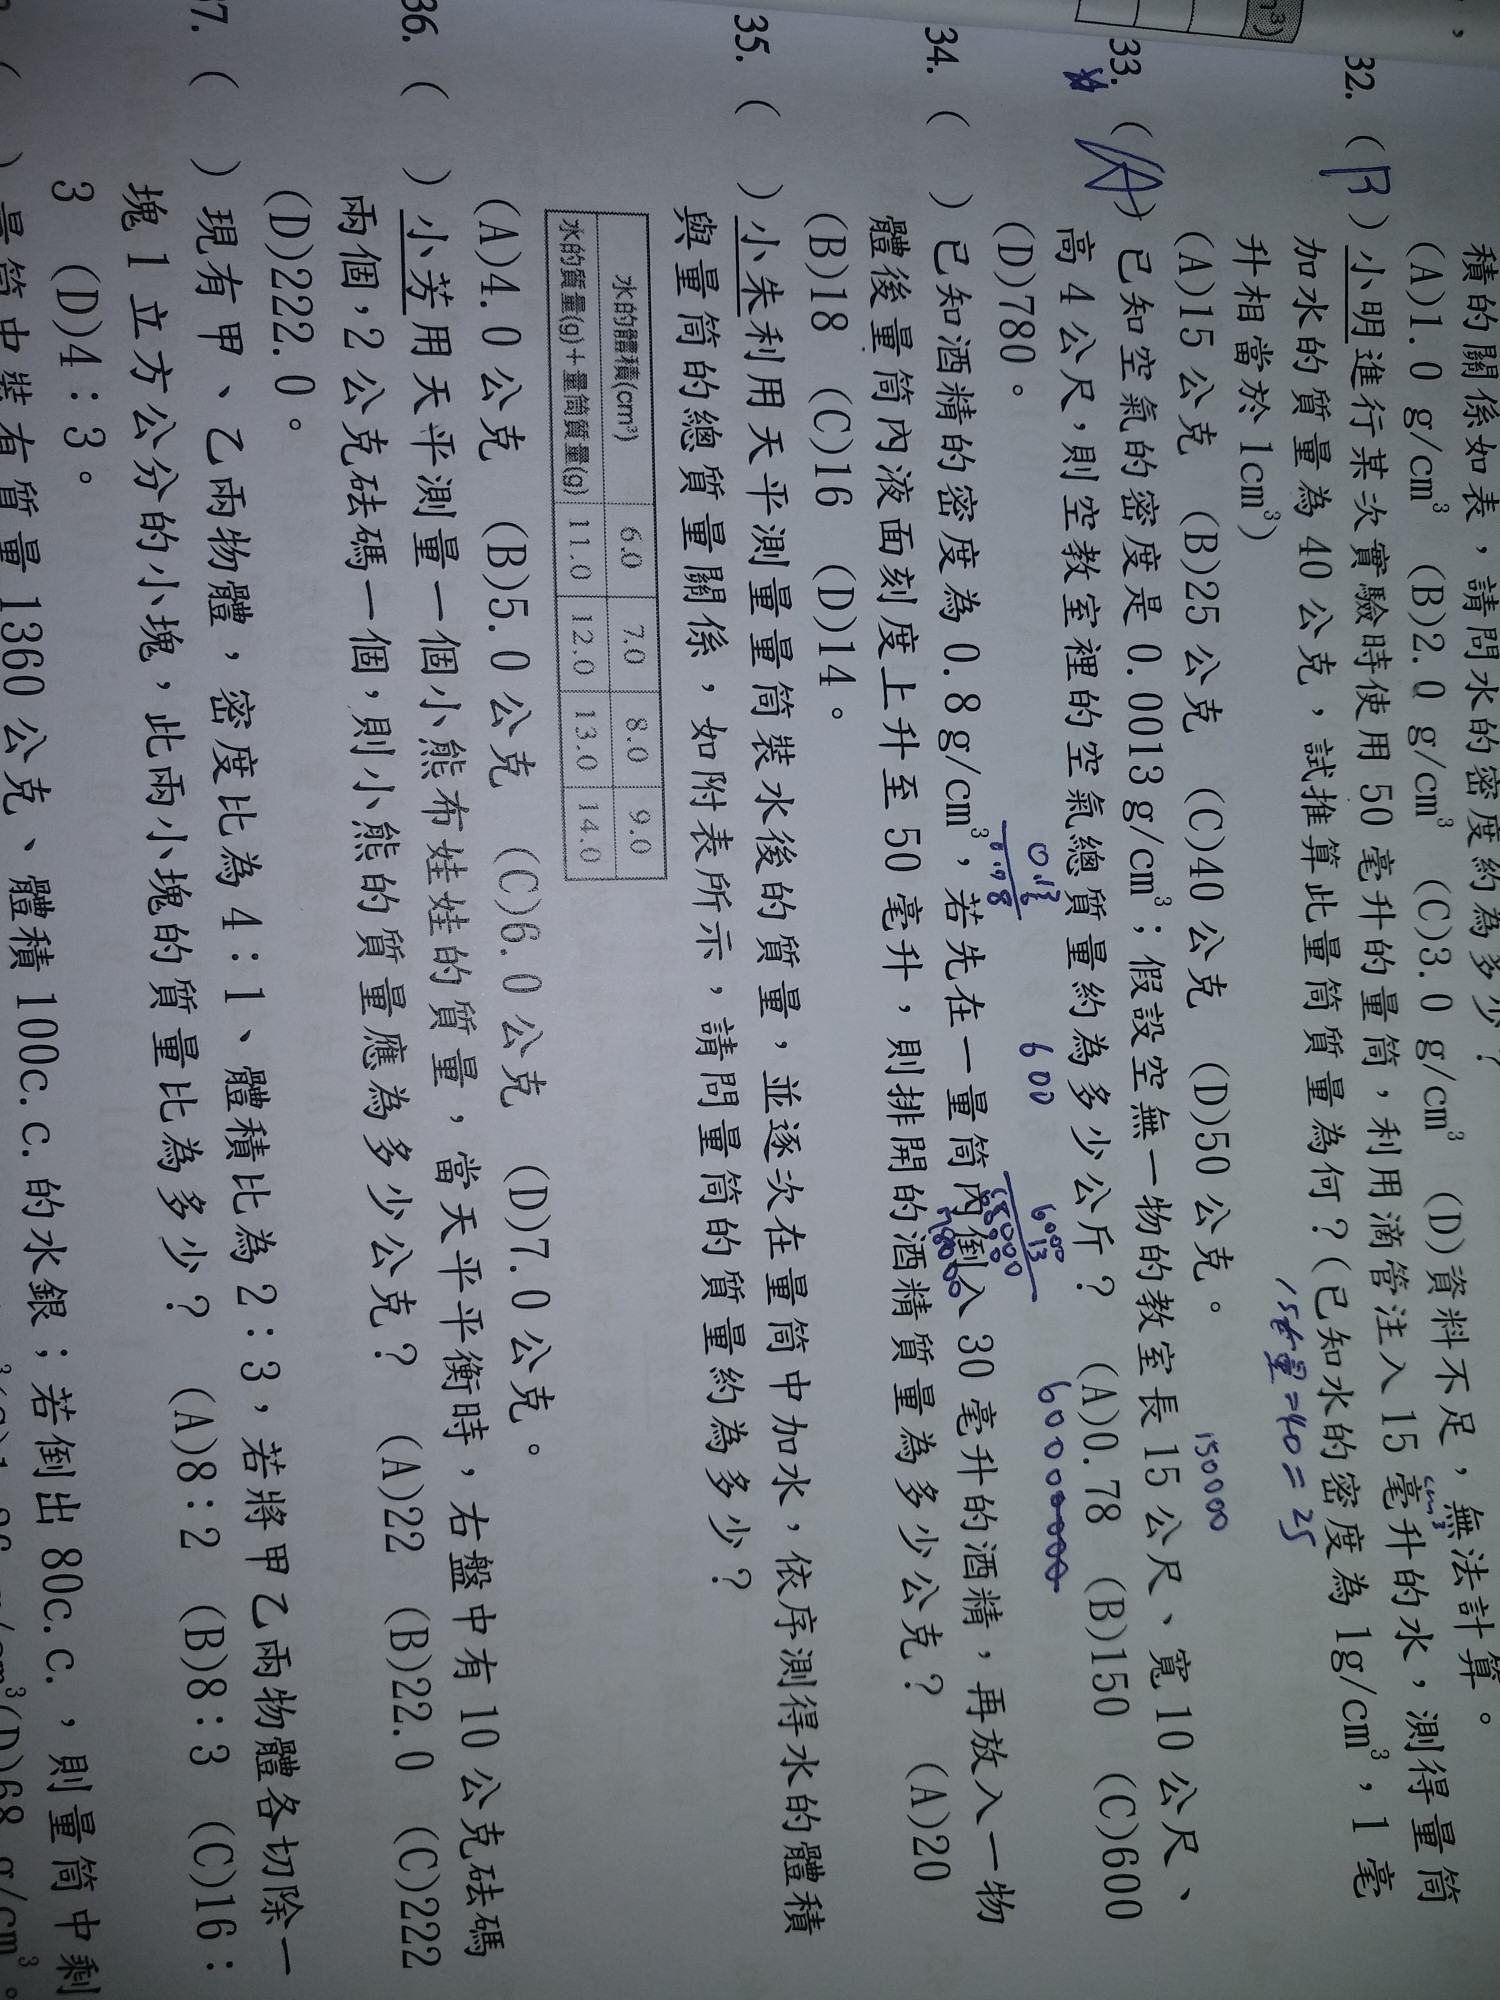 積的關係如表，請問水的密度約為多少？
(A)1.0 g/cm³ (B)2.0 g/cm³ (C)3.0 g/cm³ (D)資料不足，無法計算。
32. (B)小明進行某次實驗時使用50毫升的量筒，利用滴管注入15毫升的水，測得量筒
cm³
加水的質量為40公克，試推算此量筒質量為何？(已知水的密度為1g/cm³，1毫
升相當於1cm³)
15+量=40=25
(A)15公克 (B)25公克 (C)40公克 (D)50公克。
150000
33. (A)已知空氣的密度是0.0013g/cm³；假設空無一物的教室長15公尺、寬10公尺、
高4公尺，則空教室裡的空氣總質量約為多少公斤？ (A)0.78 (B)150 (C)600
(D)780。
0.13
6
0.78
600
6000
13
78000
600000000
34. ( )已知酒精的密度為0.8g/cm³，若先在一量筒內倒入30毫升的酒精，再放入一物
體後量筒內液面刻度上升至50毫升，則排開的酒精質量為多少公克？ (A)20
(B)18 (C)16 (D)14。
35. ( )小朱利用天平測量量筒裝水後的質量，並逐次在量筒中加水，依序測得水的體積
與量筒的總質量關係，如附表所示，請問量筒的質量約為多少？
水的體積(cm³) 6.0 7.0 8.0 9.0
水的質量(g)+量筒質量(g) 11.0 12.0 13.0 14.0
(A)4.0公克 (B)5.0公克 (C)6.0公克 (D)7.0公克。
36. ( )小芳用天平測量一個小熊布娃娃的質量，當天平平衡時，右盤中有10公克砝碼
兩個，2公克砝碼一個，則小熊的質量應為多少公克？ (A)22 (B)22.0 (C)222
(D)222.0。
37. ( )現有甲、乙兩物體，密度比為4：1、體積比為2：3，若將甲乙兩物體各切除一
塊1立方公分的小塊，此兩小塊的質量比為多少？ (A)8：2 (B)8：3 (C)16：
3 (D)4：3。
( )量筒中裝有質量1360公克、體積100c.c.的水銀；若倒出80c.c.，則量筒中剩